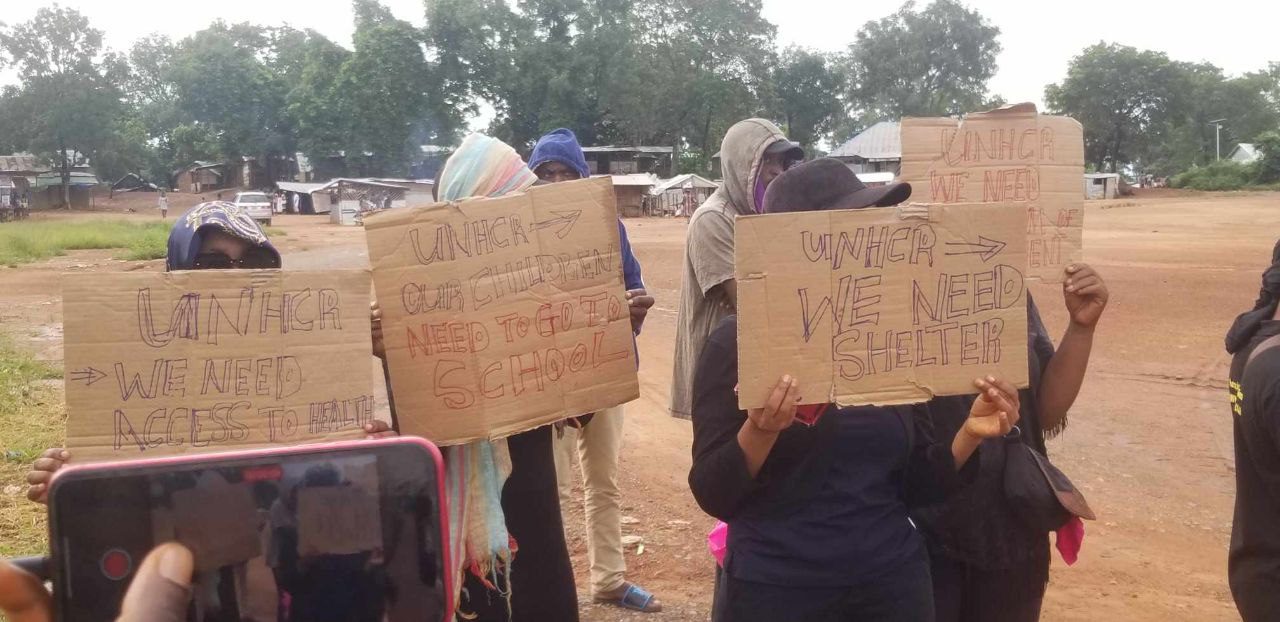 UNHCR
→ WE NEED
ACCESS TO HEALTH
UNHCR →
OUR CHILDREN
NEED TO GO TO
SCHOOL
UNHCR →
WE NEED
SHELTER
UNHCR
WE NEED